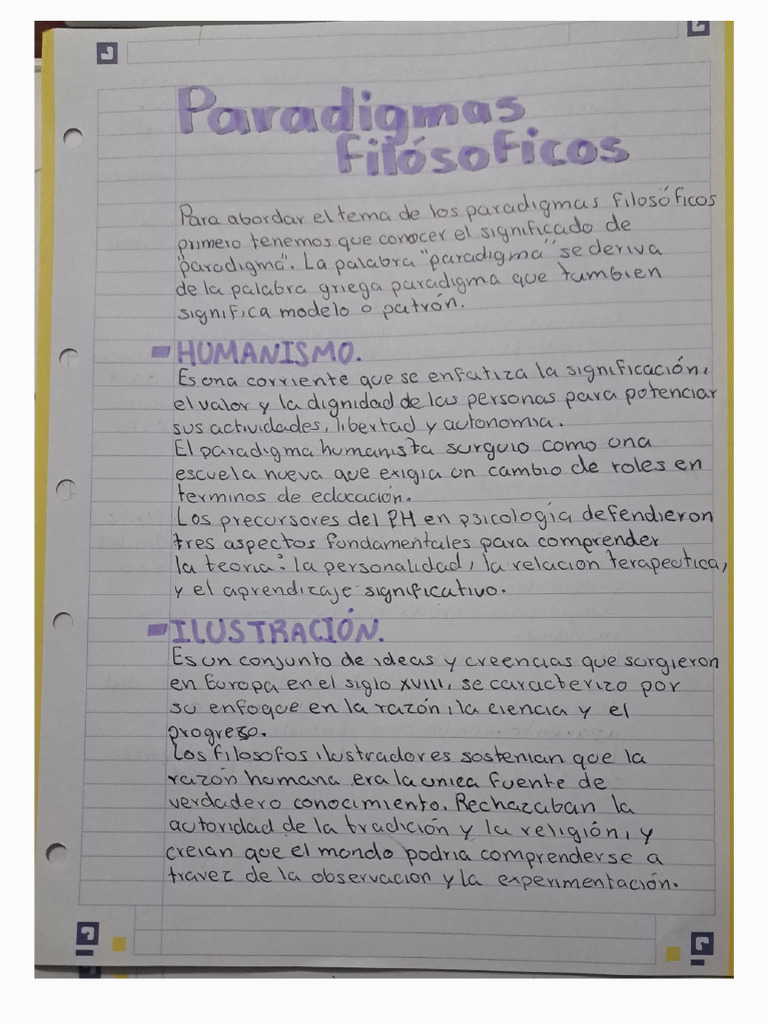 Paradigmas
Filósoficos
Para abordar el tema de los paradigmas filosóficos
primero tenemos que conocer el significado de
"paradigma". La palabra "paradigma" se deriva
de la palabra griega paradigma que tambien
significa modelo o patrón.
- HUMANISMO.
Es una corriente que se enfatiza la significación,
el valor y la dignidad de las personas para potenciar
sus actividades, libertad y autonomia.
El paradigma humanista surguio como una
escuela nueva que exigia un cambio de roles en
terminos de educación.
Los precursores del PH en psicología defendieron
tres aspectos fundamentales para comprender
la teoria: la personalidad, la relacion terapeutica,
y el aprendizaje significativo.
- ILUSTRACIÓN.
Es un conjunto de ideas y creencias que surgieron
en Europa en el siglo XVIII, se caracterizo por
su enfoque en la razón, la ciencia y el
progreso.
Los filosofos ilustradores sostenian que la
razón humana era la unica fuente de
verdadero conocimiento. Rechazaban la
autoridad de la tradición y la religión, y
creian que el mundo podria comprenderse a
travez de la observacion y la experimentación.